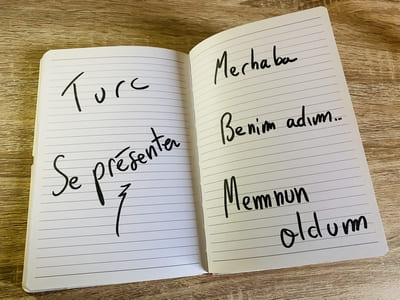 Turc
Se présenter
Merhaba
Benim adım..
Memnun
oldum